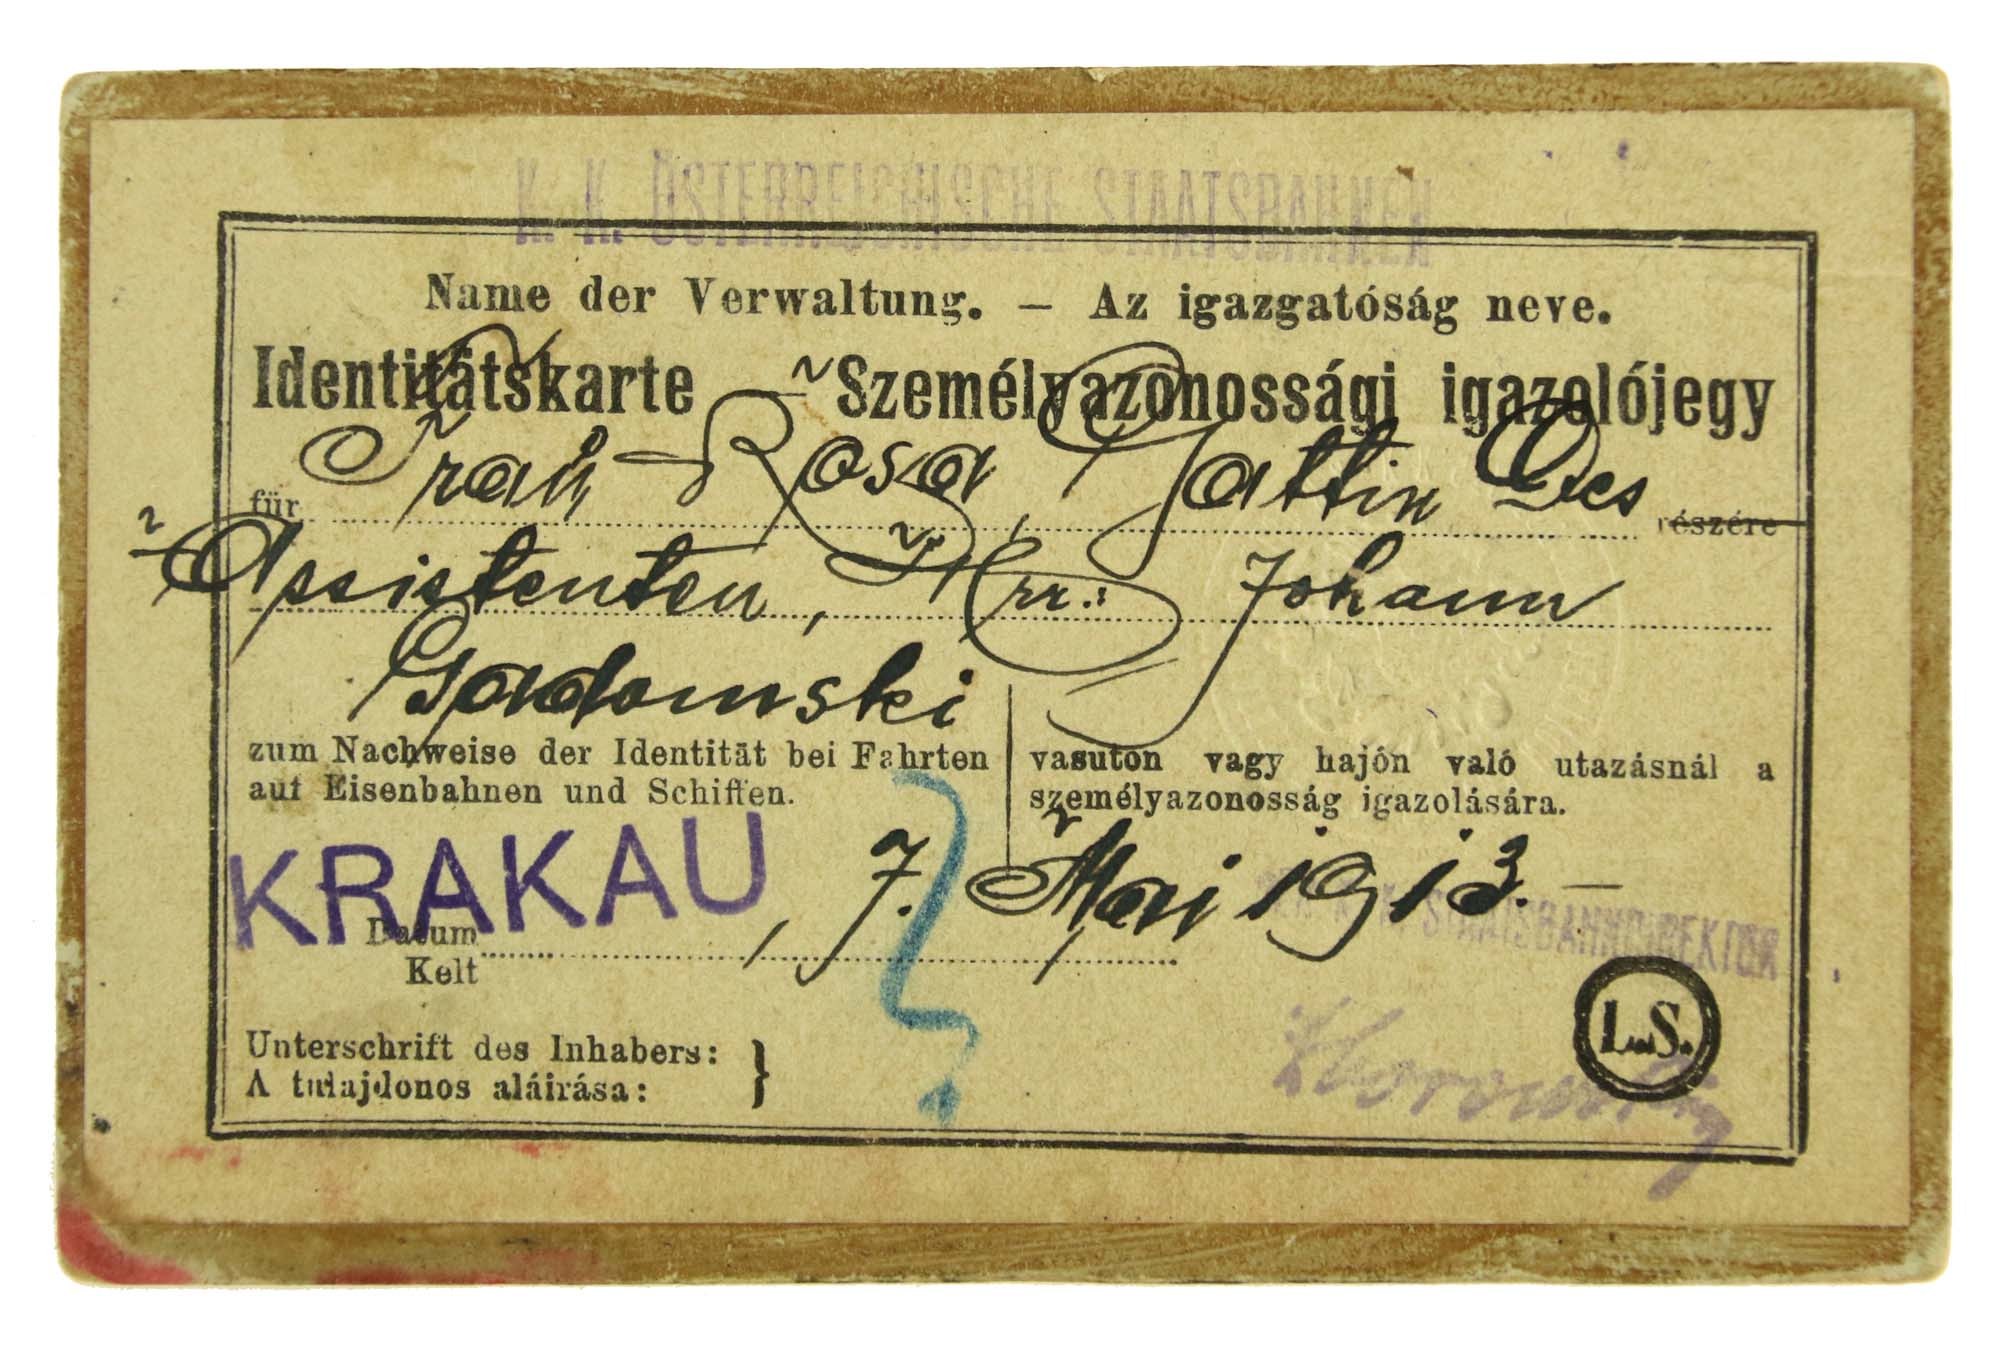 K. K. ÖSTERREICHISCHE STAATSBAHNEN
Name der Verwaltung. — Az igazgatóság neve.
Identitätskarte — Személyazonossági igazolójegy
für Frau Rosa, Gattin des részére
Assistenten, Hrr.: Johann
Gadomski
zum Nachweise der Identität bei Fahrten
auf Eisenbahnen und Schiffen.
vasuton vagy hajón való utazásnál a
személyazonosság igazolására.
KRAKAU, 7. Mai 1913. —
Datum
Kelt
K. K. STAATSBAHNDIREKTOR
L. S.
Unterschrift des Inhabers:
A tulajdonos aláirása: